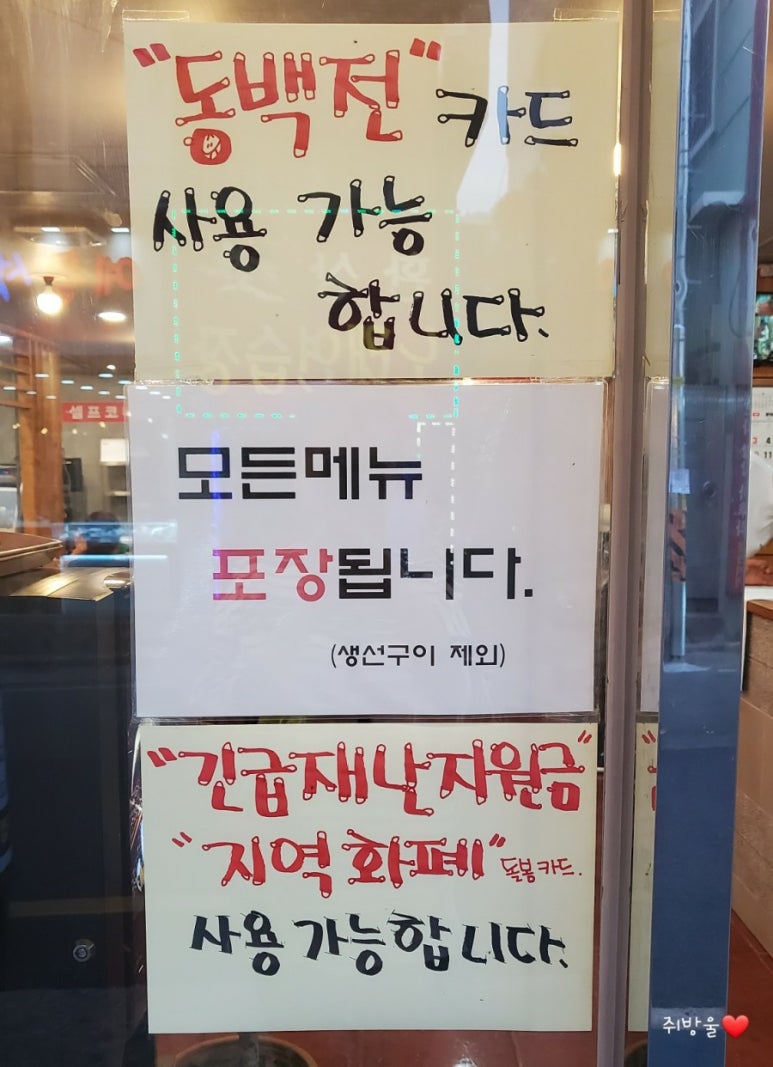 "동백전" 카드
사용 가능
합니다.
모든메뉴
포장됩니다.
(생선구이 제외)
"긴급재난지원금"
"지역화폐" 돌봄카드.
사용가능합니다.
셀프코
쥐방울